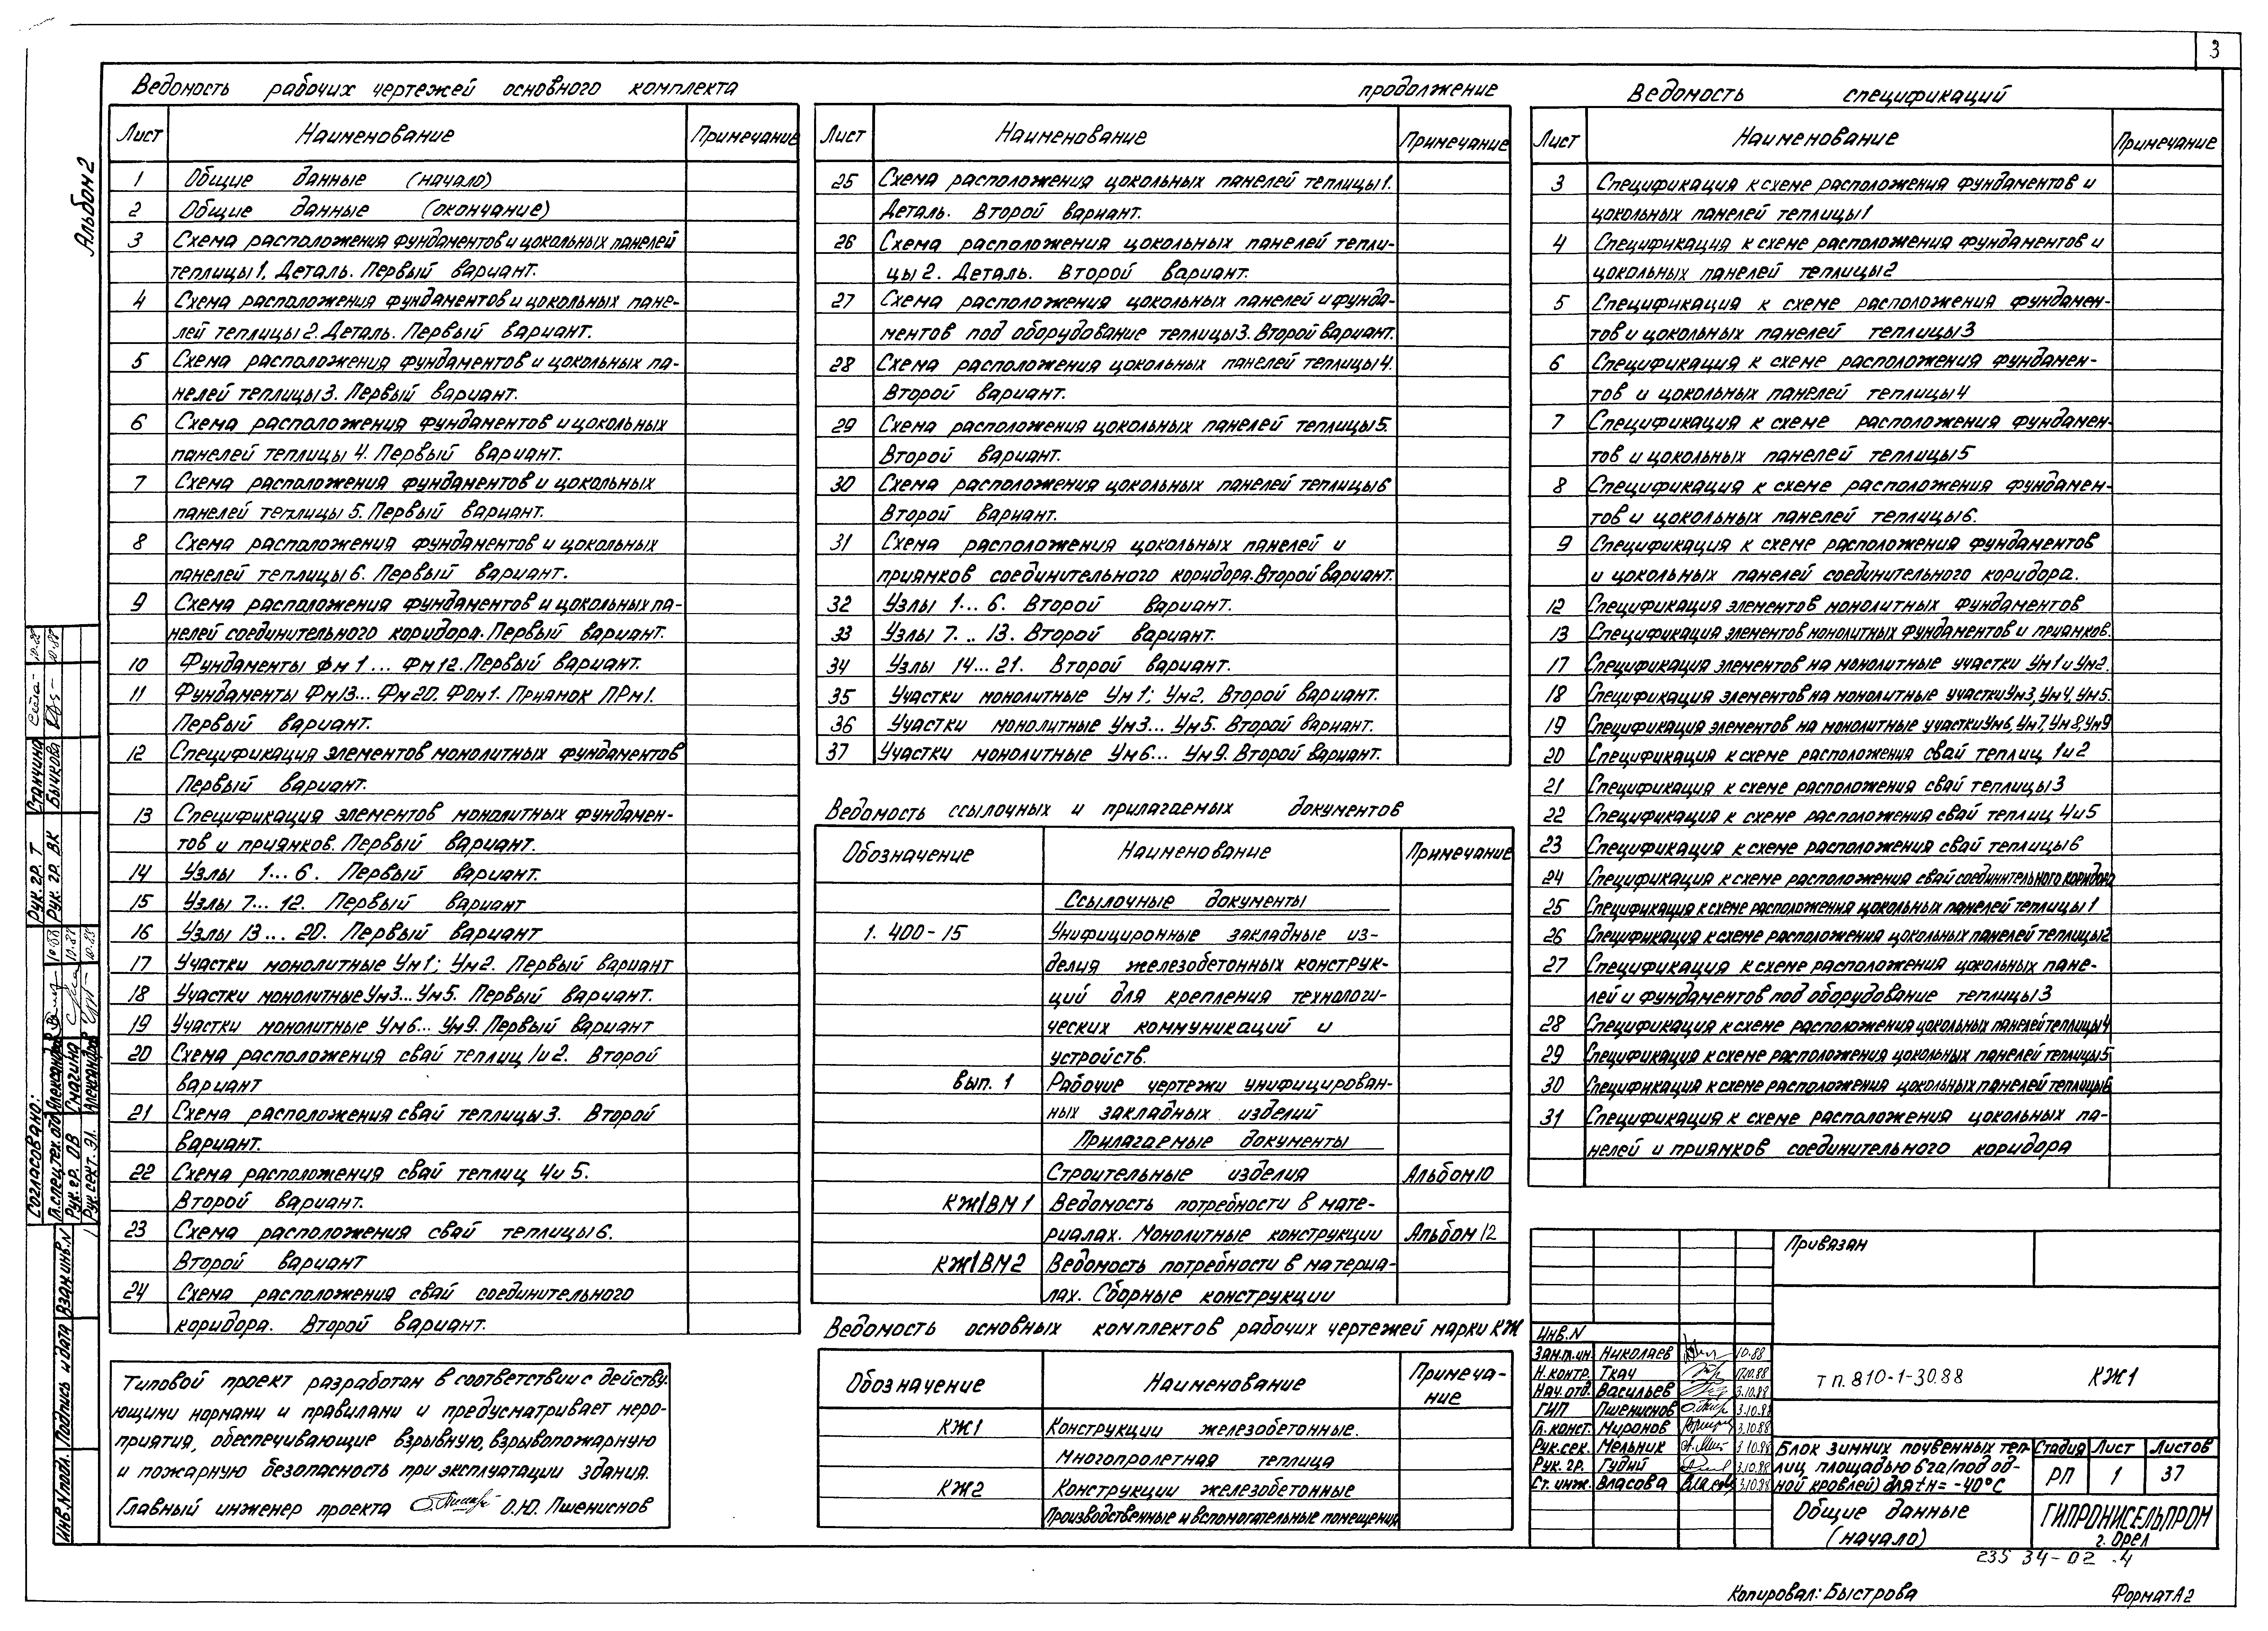 3
Альбом 2
Ведомость рабочих чертежей основного комплекта
Лист Наименование Примечание
1 Общие данные (начало)
2 Общие данные (окончание)
3 Схема расположения фундаментов и цокольных панелей
теплицы 1. Деталь. Первый вариант.
4 Схема расположения фундаментов и цокольных пане-
лей теплицы 2. Деталь. Первый вариант.
5 Схема расположения фундаментов и цокольных па-
нелей теплицы 3. Первый вариант.
6 Схема расположения фундаментов и цокольных
панелей теплицы 4. Первый вариант.
7 Схема расположения фундаментов и цокольных
панелей теплицы 5. Первый вариант.
8 Схема расположения фундаментов и цокольных
панелей теплицы 6. Первый вариант.
9 Схема расположения фундаментов и цокольных па-
нелей соединительного коридора. Первый вариант.
10 Фундаменты Фм 1 ... Фм 12. Первый вариант.
11 Фундаменты Фм13... Фм 20. Фом 1. Приямок ПРм1.
Первый вариант.
12 Спецификация элементов монолитных фундаментов
Первый вариант.
13 Спецификация элементов монолитных фундамен-
тов и приямков. Первый вариант.
14 Узлы 1... 6. Первый вариант.
15 Узлы 7... 12. Первый вариант
16 Узлы 13... 20. Первый вариант
17 Участки монолитные Ум1; Ум2. Первый вариант
18 Участки монолитные Ум3... Ум5. Первый вариант.
19 Участки монолитные Ум6... Ум9. Первый вариант
20 Схема расположения свай теплиц 1 и 2. Второй
вариант
21 Схема расположения свай теплицы 3. Второй
вариант.
22 Схема расположения свай теплиц 4 и 5.
Второй вариант.
23 Схема расположения свай теплицы 6.
Второй вариант
24 Схема расположения свай соединительного
коридора. Второй вариант.
Типовой проект разработан в соответствии с действу-
ющими нормами и правилами и предусматривает меро-
приятия, обеспечивающие взрывную, взрывопожарную
и пожарную безопасность при эксплуатации здания.
Главный инженер проекта О.Ю. Пшениснов
продолжение
Лист Наименование Примечание
25 Схема расположения цокольных панелей теплицы 1.
Деталь. Второй вариант.
26 Схема расположения цокольных панелей тепли-
цы 2. Деталь. Второй вариант.
27 Схема расположения цокольных панелей и фунда-
ментов под оборудование теплицы 3. Второй вариант.
28 Схема расположения цокольных панелей теплицы 4.
Второй вариант.
29 Схема расположения цокольных панелей теплицы 5.
Второй вариант.
30 Схема расположения цокольных панелей теплицы 6
Второй вариант.
31 Схема расположения цокольных панелей и
приямков соединительного коридора. Второй вариант.
32 Узлы 1... 6. Второй вариант.
33 Узлы 7... 13. Второй вариант.
34 Узлы 14... 21. Второй вариант.
35 Участки монолитные Ум 1; Ум2. Второй вариант.
36 Участки монолитные Ум3... Ум5. Второй вариант.
37 Участки монолитные Ум6... Ум9. Второй вариант.
Ведомость ссылочных и прилагаемых документов
Обозначение Наименование Примечание
Ссылочные документы
1. 400-15 Унифициронные закладные из-
делия железобетонных конструк-
ций для крепления технологи-
ческих коммуникаций и
устройств.
вып. 1 Рабочие чертежи унифицирован-
ных закладных изделий
Прилагаемые документы
Строительные изделия Альбом 10
КЖ1ВМ1 Ведомость потребности в мате-
риалах. Монолитные конструкции Альбом 12
КЖ1ВМ2 Ведомость потребности в материа-
лах. Сборные конструкции
Ведомость основных комплектов рабочих чертежей марки КЖ
Обозначение Наименование Примеча-
ние
КЖ1 Конструкции железобетонные.
Многопролетная теплица
КЖ2 Конструкции железобетонные
Производственные и вспомогательные помещения
Ведомость спецификаций
Лист Наименование Примечание
3 Спецификация к схеме расположения фундаментов и
цокольных панелей теплицы 1
4 Спецификация к схеме расположения фундаментов и
цокольных панелей теплицы 2
5 Спецификация к схеме расположения фундамен-
тов и цокольных панелей теплицы 3
6 Спецификация к схеме расположения фундамен-
тов и цокольных панелей теплицы 4
7 Спецификация к схеме расположения фундамен-
тов и цокольных панелей теплицы 5
8 Спецификация к схеме расположения фундамен-
тов и цокольных панелей теплицы 6.
9 Спецификация к схеме расположения фундаментов
и цокольных панелей соединительного коридора.
12 Спецификация элементов монолитных фундаментов
13 Спецификация элементов монолитных фундаментов и приямков.
17 Спецификация элементов на монолитные участки Ум1 и Ум2.
18 Спецификация элементов на монолитные участки Ум3, Ум4, Ум5.
19 Спецификация элементов на монолитные участки Ум6, Ум7, Ум8, Ум9
20 Спецификация к схеме расположения свай теплиц 1 и 2
21 Спецификация к схеме расположения свай теплицы 3
22 Спецификация к схеме расположения свай теплиц 4 и 5
23 Спецификация к схеме расположения свай теплицы 6
24 Спецификация к схеме расположения свай соединительного коридора
25 Спецификация к схеме расположения цокольных панелей теплицы 1
26 Спецификация к схеме расположения цокольных панелей теплицы 2
27 Спецификация к схеме расположения цокольных пане-
лей и фундаментов под оборудование теплицы 3
28 Спецификация к схеме расположения цокольных панелей теплицы 4
29 Спецификация к схеме расположения цокольных панелей теплицы 5
30 Спецификация к схеме расположения цокольных панелей теплицы 6
31 Спецификация к схеме расположения цокольных па-
нелей и приямков соединительного коридора
Привязан
Инв.N
Зам.т.ин. Николаев 10.88
Н.контр. Ткач 17.10.88
Нач.отд. Васильев 3.10.88
ГИП Пшениснов 3.10.88
Гл.конст. Миронов 3.10.88
Рук.сек. Мельник 3.10.88
Рук.гр. Гудий 3.10.88
Ст.инж. Власова 3.10.88
т п. 810-1-30.88 КЖ1
Блок зимних почвенных теп-
лиц площадью 6 га (под од-
ной кровлей) для tн= -40°С
Стадия Лист Листов
РП 1 37
Общие данные
(начало)
ГИПРОНИСЕЛЬПРОМ
г. Орел
235 34-02 4
Копировал: Быстрова Формат А2
Согласовано:
Гл.спец.тех.отд. Александров 10.88
Рук. гр. ОВ Смагина 10.87
Рук. сект. Эл. Александров 10.88
Рук. гр. Т Станчина 10.88
Рук. гр. ВК Бычкова 10.88
Инв.N подл. Подпись и дата Взам.инв.N